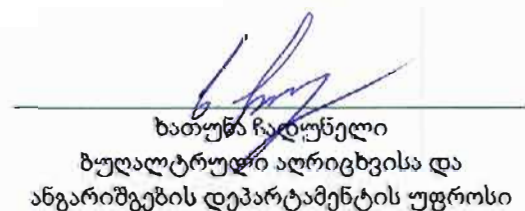 ხათუნა ჩადუნელი
ბუღალტრული აღრიცხვისა და
ანგარიშგების დეპარტამენტის უფროსი